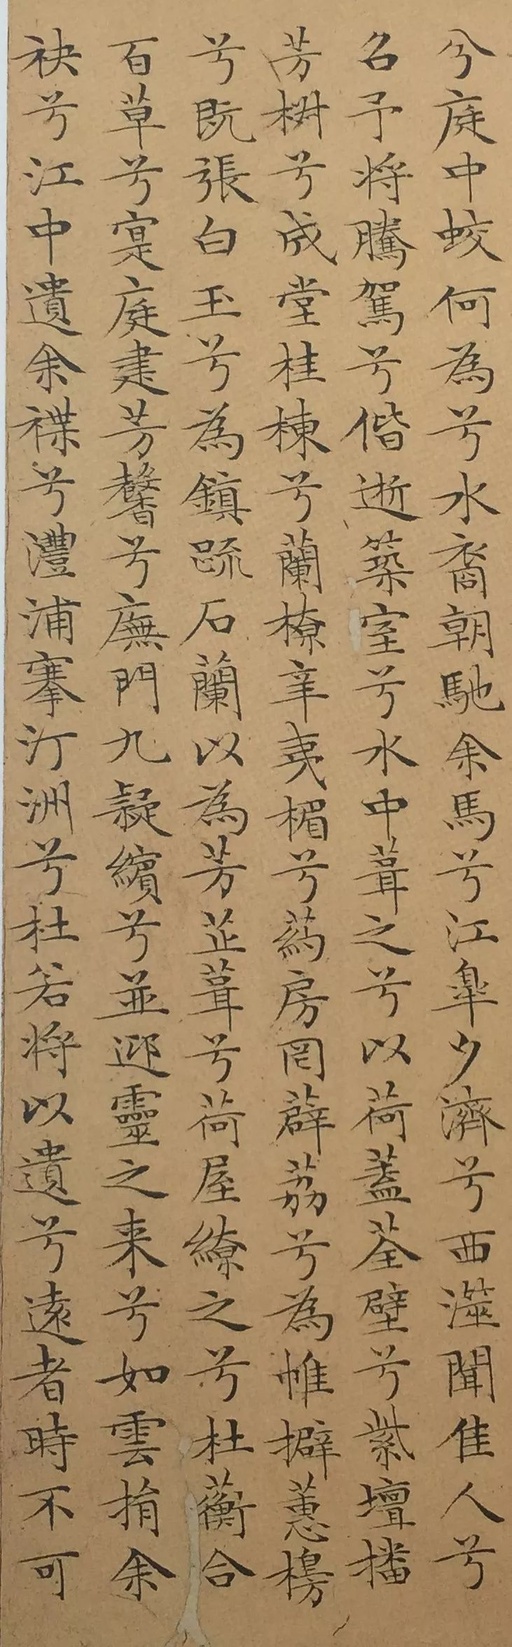 兮庭中蛟何為兮水裔朝馳余馬兮江臯夕濟兮西澨聞佳人兮
召予将騰駕兮偕逝築室兮水中葺之兮以荷蓋荃壁兮紫壇播
芳椒兮成堂桂棟兮蘭橑辛夷楣兮葯房罔薜荔兮為帷擗蕙櫋
兮既張白玉兮為鎮疏石蘭以為芳芷葺兮荷屋繚之兮杜蘅合
百草兮寔庭建芳馨兮廡門九疑繽兮並迎靈之来兮如雲捐余
袂兮江中遺余褋兮澧浦搴汀洲兮杜若将以遺兮遠者時不可